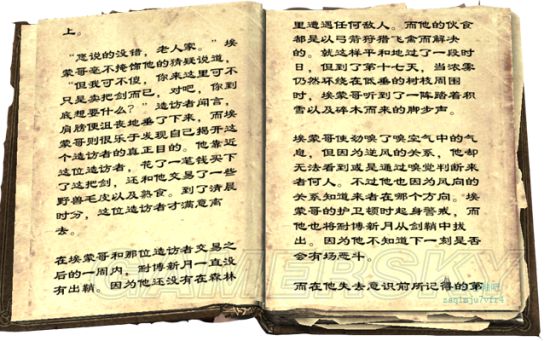 上。
“您说的没错，老人家。”埃
蒙哥毫不掩饰他的猜疑说道，
“但我可不傻，你来这里可不
只是卖把剑而已，对吧，你到
底想要什么？”造访者闻言，
肩膀便沮丧地垂了下来，而埃
蒙哥则很乐于发现自己揭开这
个造访者的真正目的。他靠近
这位造访者，花了一笔钱买下
了这把剑，还和他交易了一些
野兽毛皮以及熟食。到了清晨
时分，这位造访者才满意离
去。
在埃蒙哥和那位造访者交易之
后的一周内，耐博新月一直没
有出鞘。因为他还没有在森林
里遭遇任何敌人。而他的伙食
都是以弓箭狩猎飞禽而解决
的。就这样平和地过了一段时
日。但到了第十七天，当浓雾
仍然环绕在低垂的树枝周围
时，埃蒙哥听到了一阵踏着积
雪以及碎木而来的脚步声。
埃蒙哥使劲嗅了嗅空气中的气
息，但因为逆风的关系，他却
无法看到或是通过嗅觉判断来
者何人。不过他也因为风向的
关系知道来者在哪个方向。埃
蒙哥的护卫顿时起身警戒，而
他也将耐博新月从剑鞘中拔
出。因为他不知道下一刻是否
会有场恶斗。
而在他失去意识前所记得的第
GAMERSKY